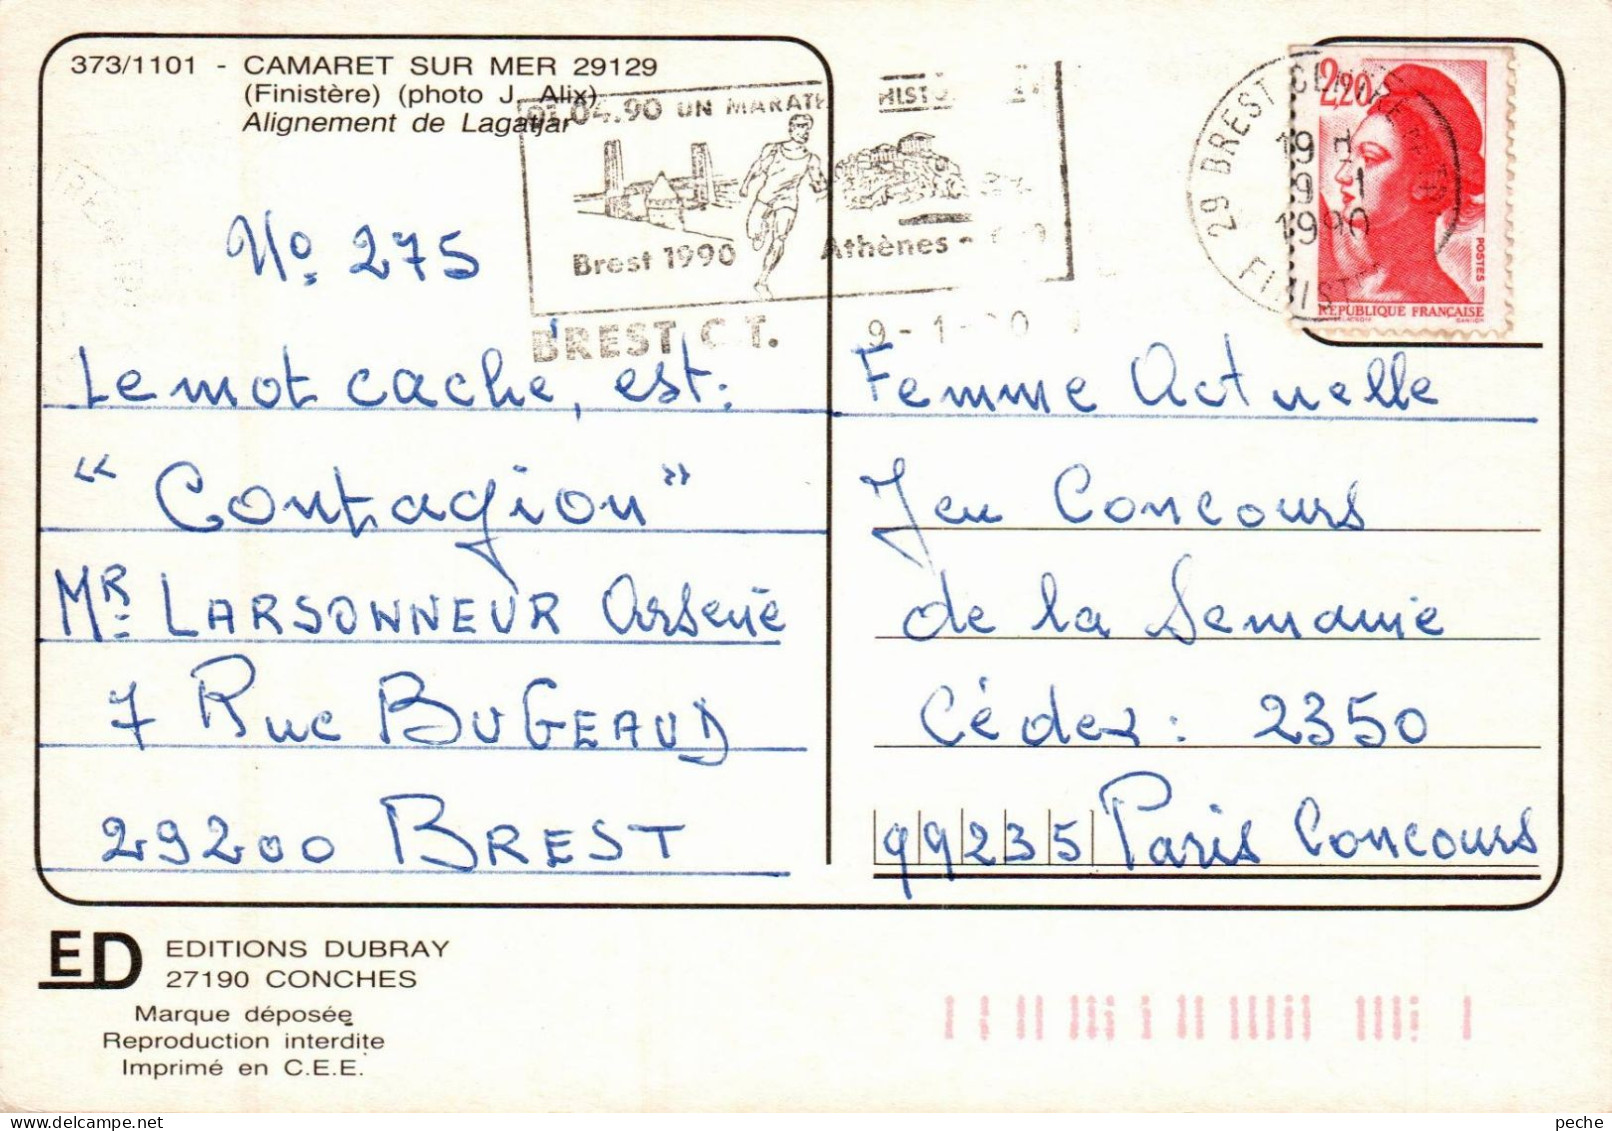 373/1101 - CAMARET SUR MER 29129
(Finistère) (photo J. Alix)
Alignement de Lagatjar
04.90 UN
Brest 1990
Athènes -
BREST C T.
9-1-
29 BREST
19 H
9-1
1990
2,20
POSTES
REPUBLIQUE FRANÇAISE
No 275
Le mot cache, est:
"Contagion"
Mr LARSONNEUR Arsène
7 Rue BUGEAUD
29200 BREST
Femme Actuelle
Jeu Concours
de la Semaine
Cédex: 2350
99235 Paris Concours
ED
EDITIONS DUBRAY
27190 CONCHES
Marque déposée
Reproduction interdite
Imprimé en C.E.E.
peche